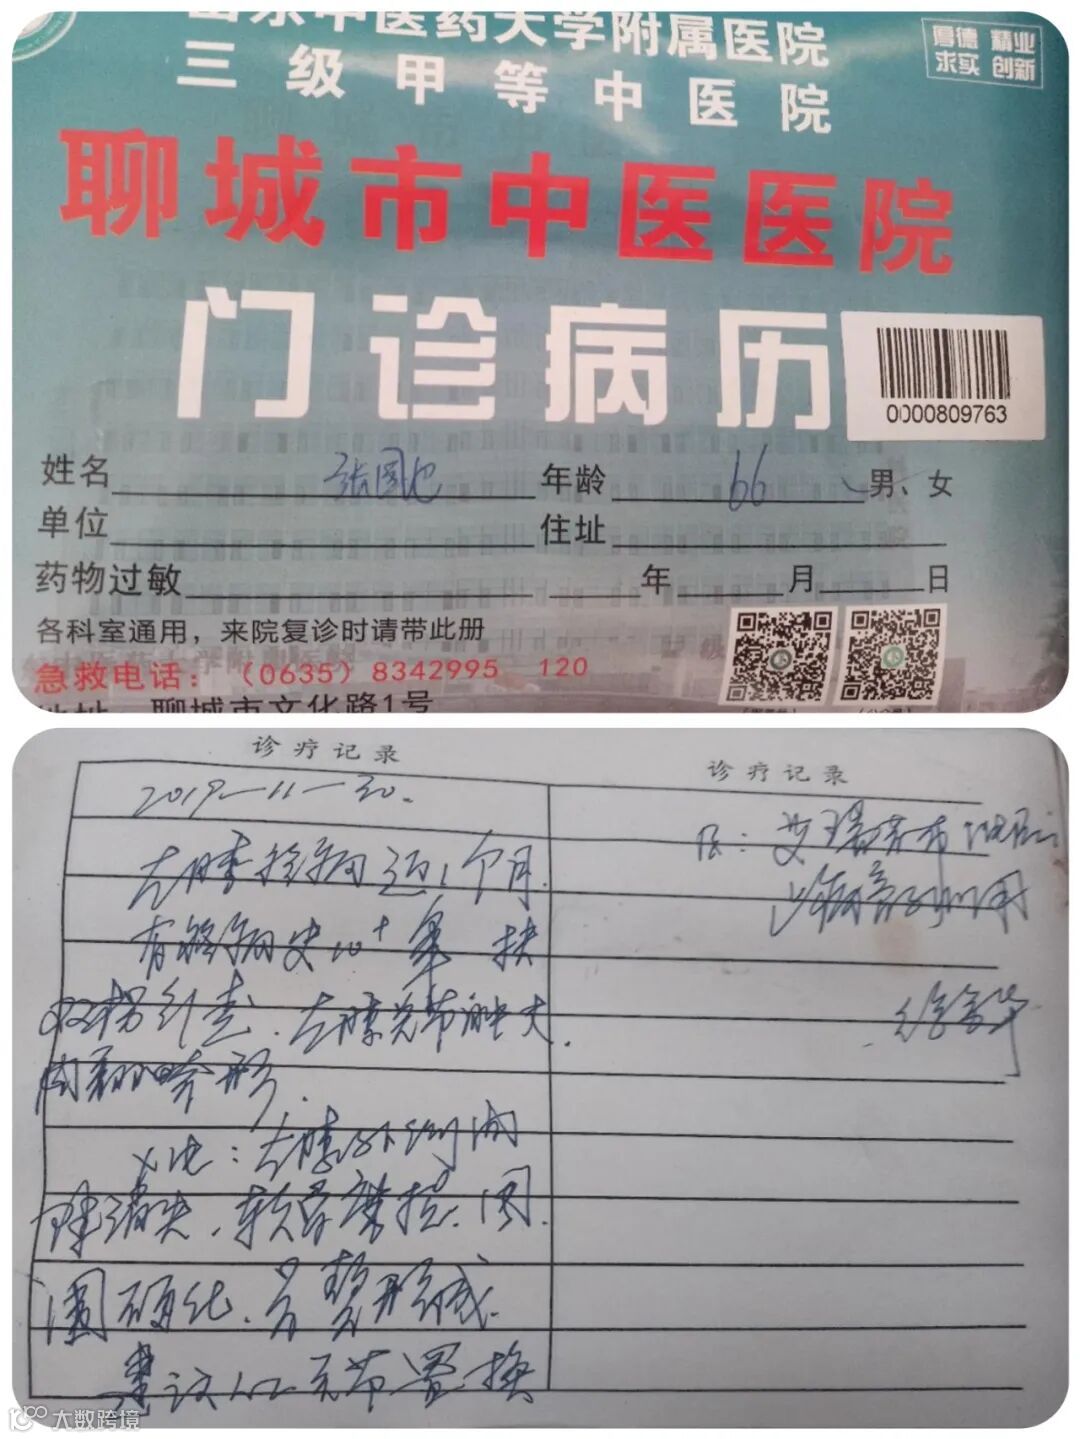 山东中医药大学附属医院
厚德 精业
求实 创新
三级甲等中医院
聊城市中医医院
门诊病历
0000809763
姓名 张国 年龄 66 男、女
单位 住址
药物过敏 年 月 日
各科室通用，来院复诊时请带此册
急救电话：（0635）8342995 120
地址 聊城市文化路1号
诊疗记录
2019-11-30.
左膝疼痛近1个月.
有疼痛史10+年 扶
双拐行走.左膝关节肿大
内翻畸形.
X光：左膝外侧间
隙消失.软骨磨损.周
围硬化.骨赘形成.
建议人工关节置换
诊疗记录
艾瑞昔布
大数跨境